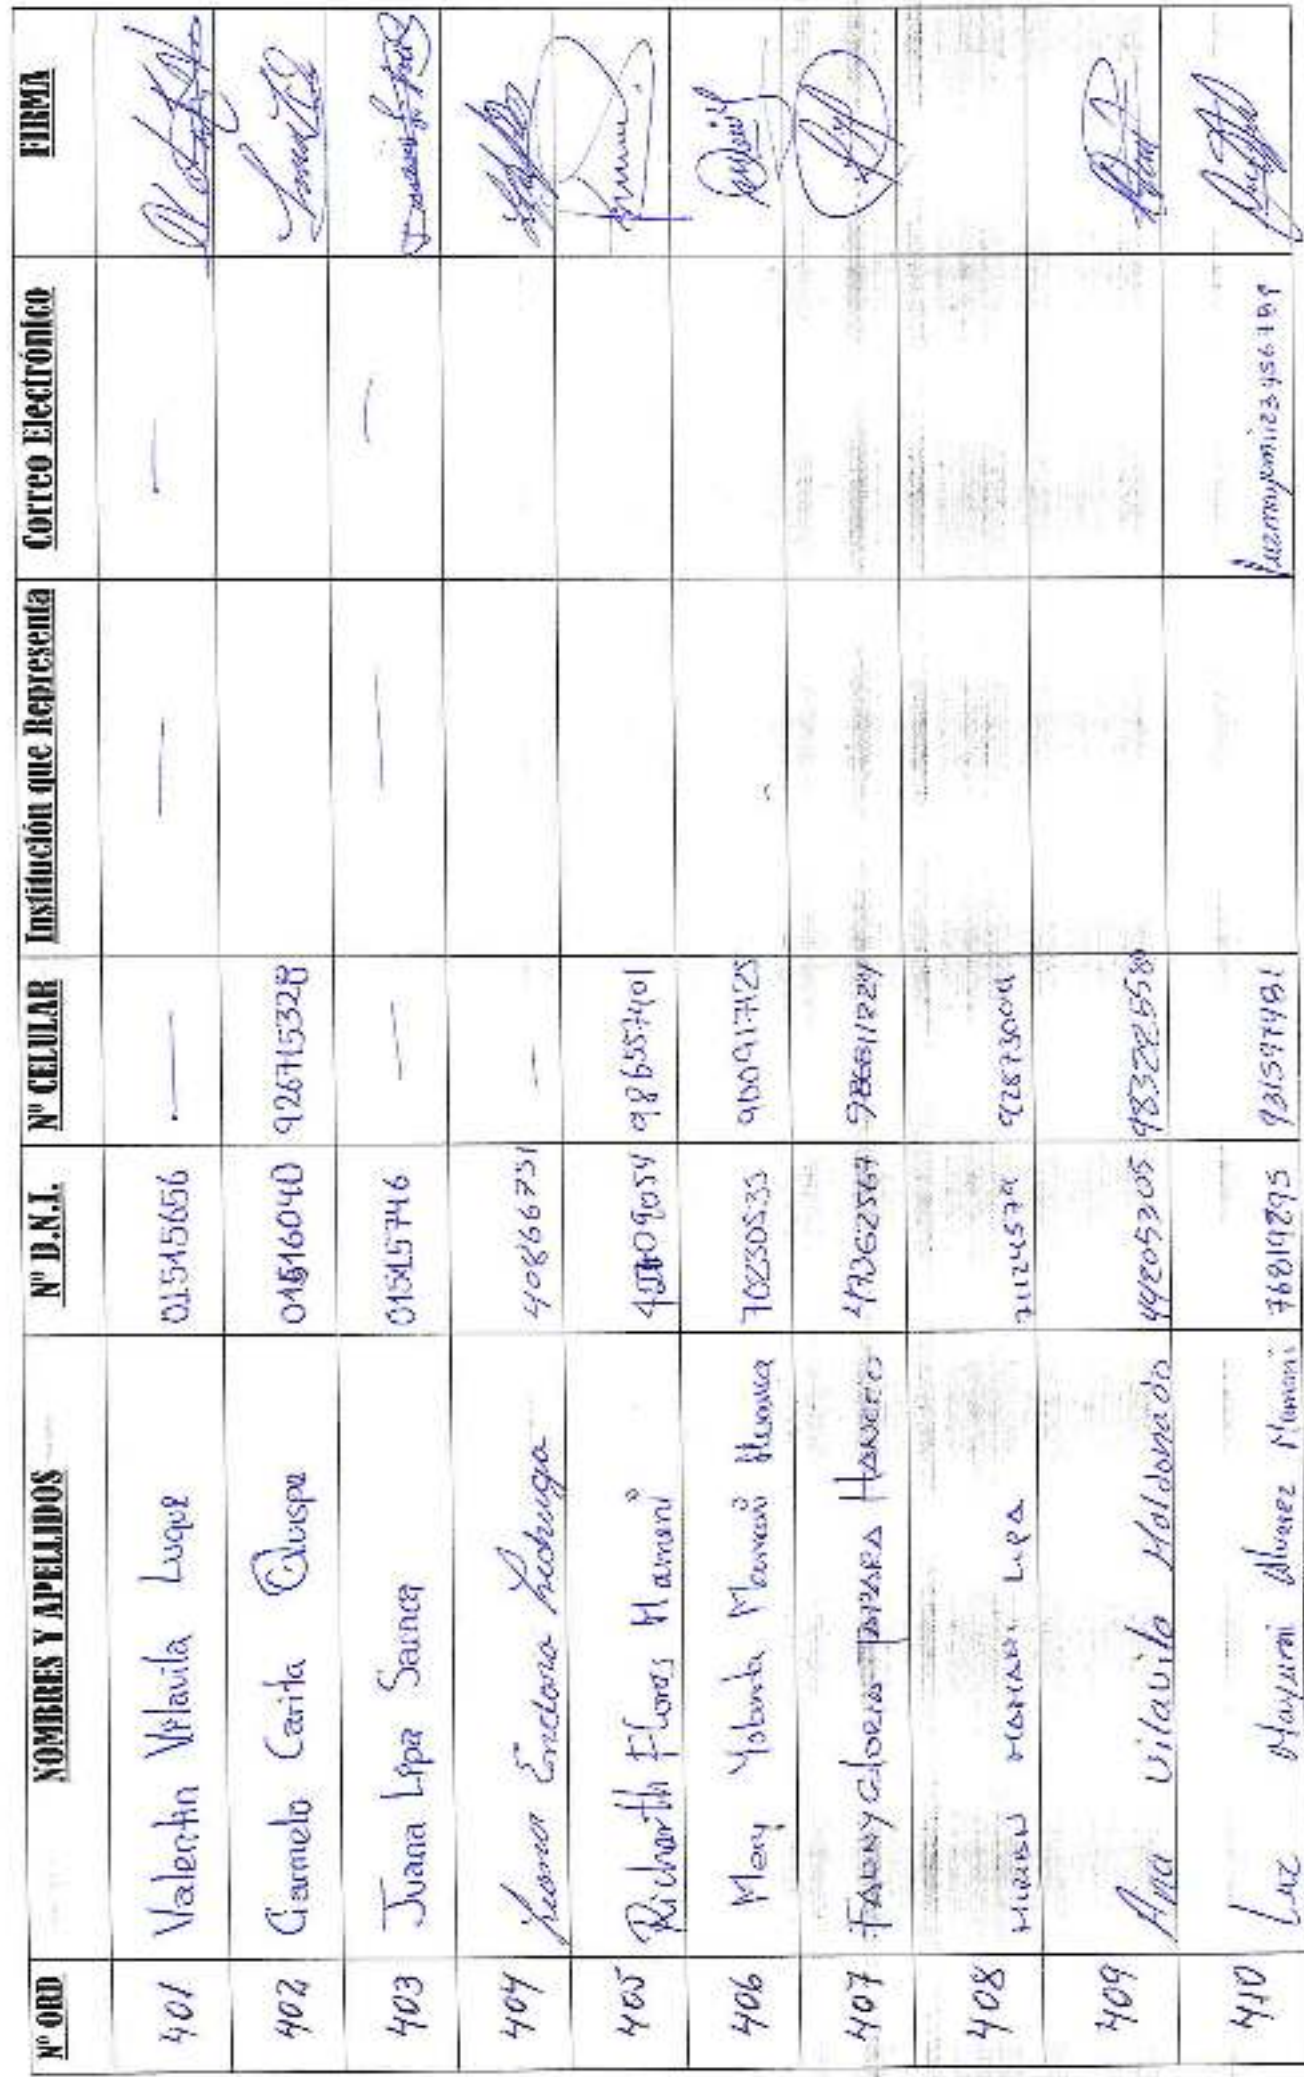 Nº ORD NOMBRES Y APELLIDOS Nº D.N.I. Nº CELULAR Institución que Representa Correo Electrónico FIRMA
401 Valentin Vilavila Luque 01515656 —
402 Carmelo Carita Quispe 01516040 926715328
403 Juana Lipa Sanca 01515746 —
404 40866731 —
405 Richarth Flores Mamani 986557401
406 Mery Yobana Mamani 70230533 900917125
407 FANNY GLORIA TAPARA HANCCO 47362567
408 MIRIAN MAMANI LIPA 71124579 928730004
409 Ana Vilavila Maldonado 44205305 983226558
410 Luz Mayumi Alvarez Mamani 76819295 931597481 luzmayumi123456789